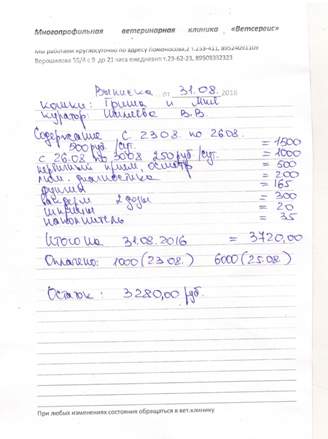 Многопрофильная ветеринарная клиника «Ветсервис»
Мы работаем круглосуточно по адресу Ломоносова,2 т.233-411, 89524091109
Ворошилова 55/4 с 9 до 21 часа ежедневно т.23-62-23, 89509332323
Выписка от 31.08. 2016
кошки: Гриша и
куратор: В.В.
Содержание с 23.08. по 26.08.
500 руб/сут. = 1500
с 26.08. по 30.08 250 руб/сут. = 1000
первичный прием, осмотр = 500
диагностика = 200
= 165
2 дозы = 300
шприцы = 20
наполнитель = 35
Итого на 31.08.2016 = 3720,00
Оплачено: 1000 (23.08.) 6000 (25.08.)
Остаток: 3280,00 руб.
При любых изменениях состояния обращаться в вет.клинику